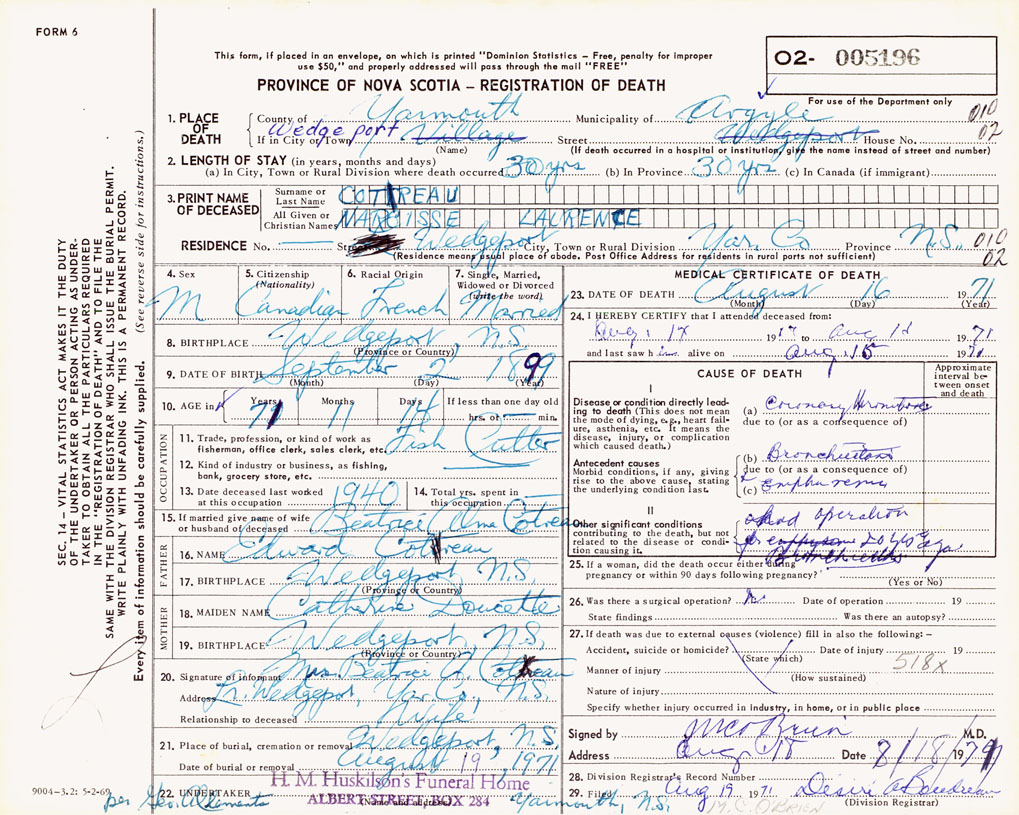 FORM 6
This form, if placed in an envelope, on which is printed "Dominion Statistics – Free, penalty for improper
use $50," and properly addressed will pass through the mail "FREE"
O2- 005196
PROVINCE OF NOVA SCOTIA – REGISTRATION OF DEATH
For use of the Department only
1. PLACE OF DEATH
County of Yarmouth Municipality of Argyle 010
If in City or Town Wedgeport Village Street Wedgeport House No. 02
(Name) (If death occurred in a hospital or institution, give the name instead of street and number)
2. LENGTH OF STAY (in years, months and days)
(a) In City, Town or Rural Division where death occurred 30 yrs (b) In Province 30 yrs (c) In Canada (if immigrant)
3. PRINT NAME OF DECEASED
Surname or Last Name COTTREAU
All Given or Christian Names NARCISSE LAURENCE
RESIDENCE No. Street Wedgeport City, Town or Rural Division Yar. Co Province N.S. 010
(Residence means usual place of abode. Post Office Address for residents in rural parts not sufficient) 02
4. Sex M
5. Citizenship (Nationality) Canadian
6. Racial Origin French
7. Single, Married, Widowed or Divorced (write the word) Married
8. BIRTHPLACE Wedgeport, N.S.
(Province or Country)
9. DATE OF BIRTH September 2 1899
(Month) (Day) (Year)
10. AGE in Years Months Days If less than one day old
71 11 14 hrs. or min.
OCCUPATION
11. Trade, profession, or kind of work as fisherman, office clerk, sales clerk, etc. Fish Cutter
12. Kind of industry or business, as fishing, bank, grocery store, etc.
13. Date deceased last worked at this occupation 1940
14. Total yrs. spent in this occupation
15. If married give name of wife or husband of deceased Beatrice Alma Cottreau
FATHER
16. NAME Edward Cottreau
17. BIRTHPLACE Wedgeport, N.S.
(Province or Country)
MOTHER
18. MAIDEN NAME Catherine Doucette
19. BIRTHPLACE Wedgeport, N.S.
(Province or Country)
20. Signature of informant Mrs. Beatrice A. Cottreau
Address Wedgeport, Yar. Co., N.S.
Relationship to deceased Wife
21. Place of burial, cremation or removal Wedgeport, N.S.
Date of burial or removal August 19, 1971
22. UNDERTAKER H. M. Huskilson's Funeral Home
(Name and address)
ALBERT STREET, BOX 284 Yarmouth, N.S.
9004–3.2: 5-2-69
per Geo.
MEDICAL CERTIFICATE OF DEATH
23. DATE OF DEATH August 16 1971
(Month) (Day) (Year)
24. I HEREBY CERTIFY that I attended deceased from:
Aug. 19 to Aug 1971
and last saw h im alive on Aug. 15 1971
CAUSE OF DEATH
Approximate interval between onset and death
I
Disease or condition directly leading to death (This does not mean the mode of dying, e.g., heart failure, asthenia, etc. It means the disease, injury, or complication which caused death.)
(a) Coronary thrombosis
due to (or as a consequence of)
Antecedent causes
Morbid conditions, if any, giving rise to the above cause, stating the underlying condition last.
(b)
due to (or as a consequence of)
(c) Emphysema
II
Other significant conditions
contributing to the death, but not related to the disease or condition causing it.
operation
25. If a woman, did the death occur either during
pregnancy or within 90 days following pregnancy?
(Yes or No)
26. Was there a surgical operation? No Date of operation 19
State findings Was there an autopsy?
27. If death was due to external causes (violence) fill in also the following: –
Accident, suicide or homicide? Date of injury 19
(State which)
Manner of injury 518x
(How sustained)
Nature of injury
Specify whether injury occurred in industry, in home, or in public place
Signed by M C O'Brien M.D.
Address Date 8/18/1971
28. Division Registrar's Record Number
29. Filed Aug 19 1971 Desire A Boudreau
M.C. O'BRIEN (Division Registrar)
SEC. 14 – VITAL STATISTICS ACT MAKES IT THE DUTY
OF THE UNDERTAKER OR PERSON ACTING AS UNDERTAKER TO OBTAIN ALL THE PARTICULARS REQUIRED
IN THE "REGISTRATION OF DEATH" AND TO FILE THE
SAME WITH THE DIVISION REGISTRAR WHO SHALL ISSUE THE BURIAL PERMIT.
WRITE PLAINLY WITH UNFADING INK. THIS IS A PERMANENT RECORD.
Every item of information should be carefully supplied. (See reverse side for instructions.)